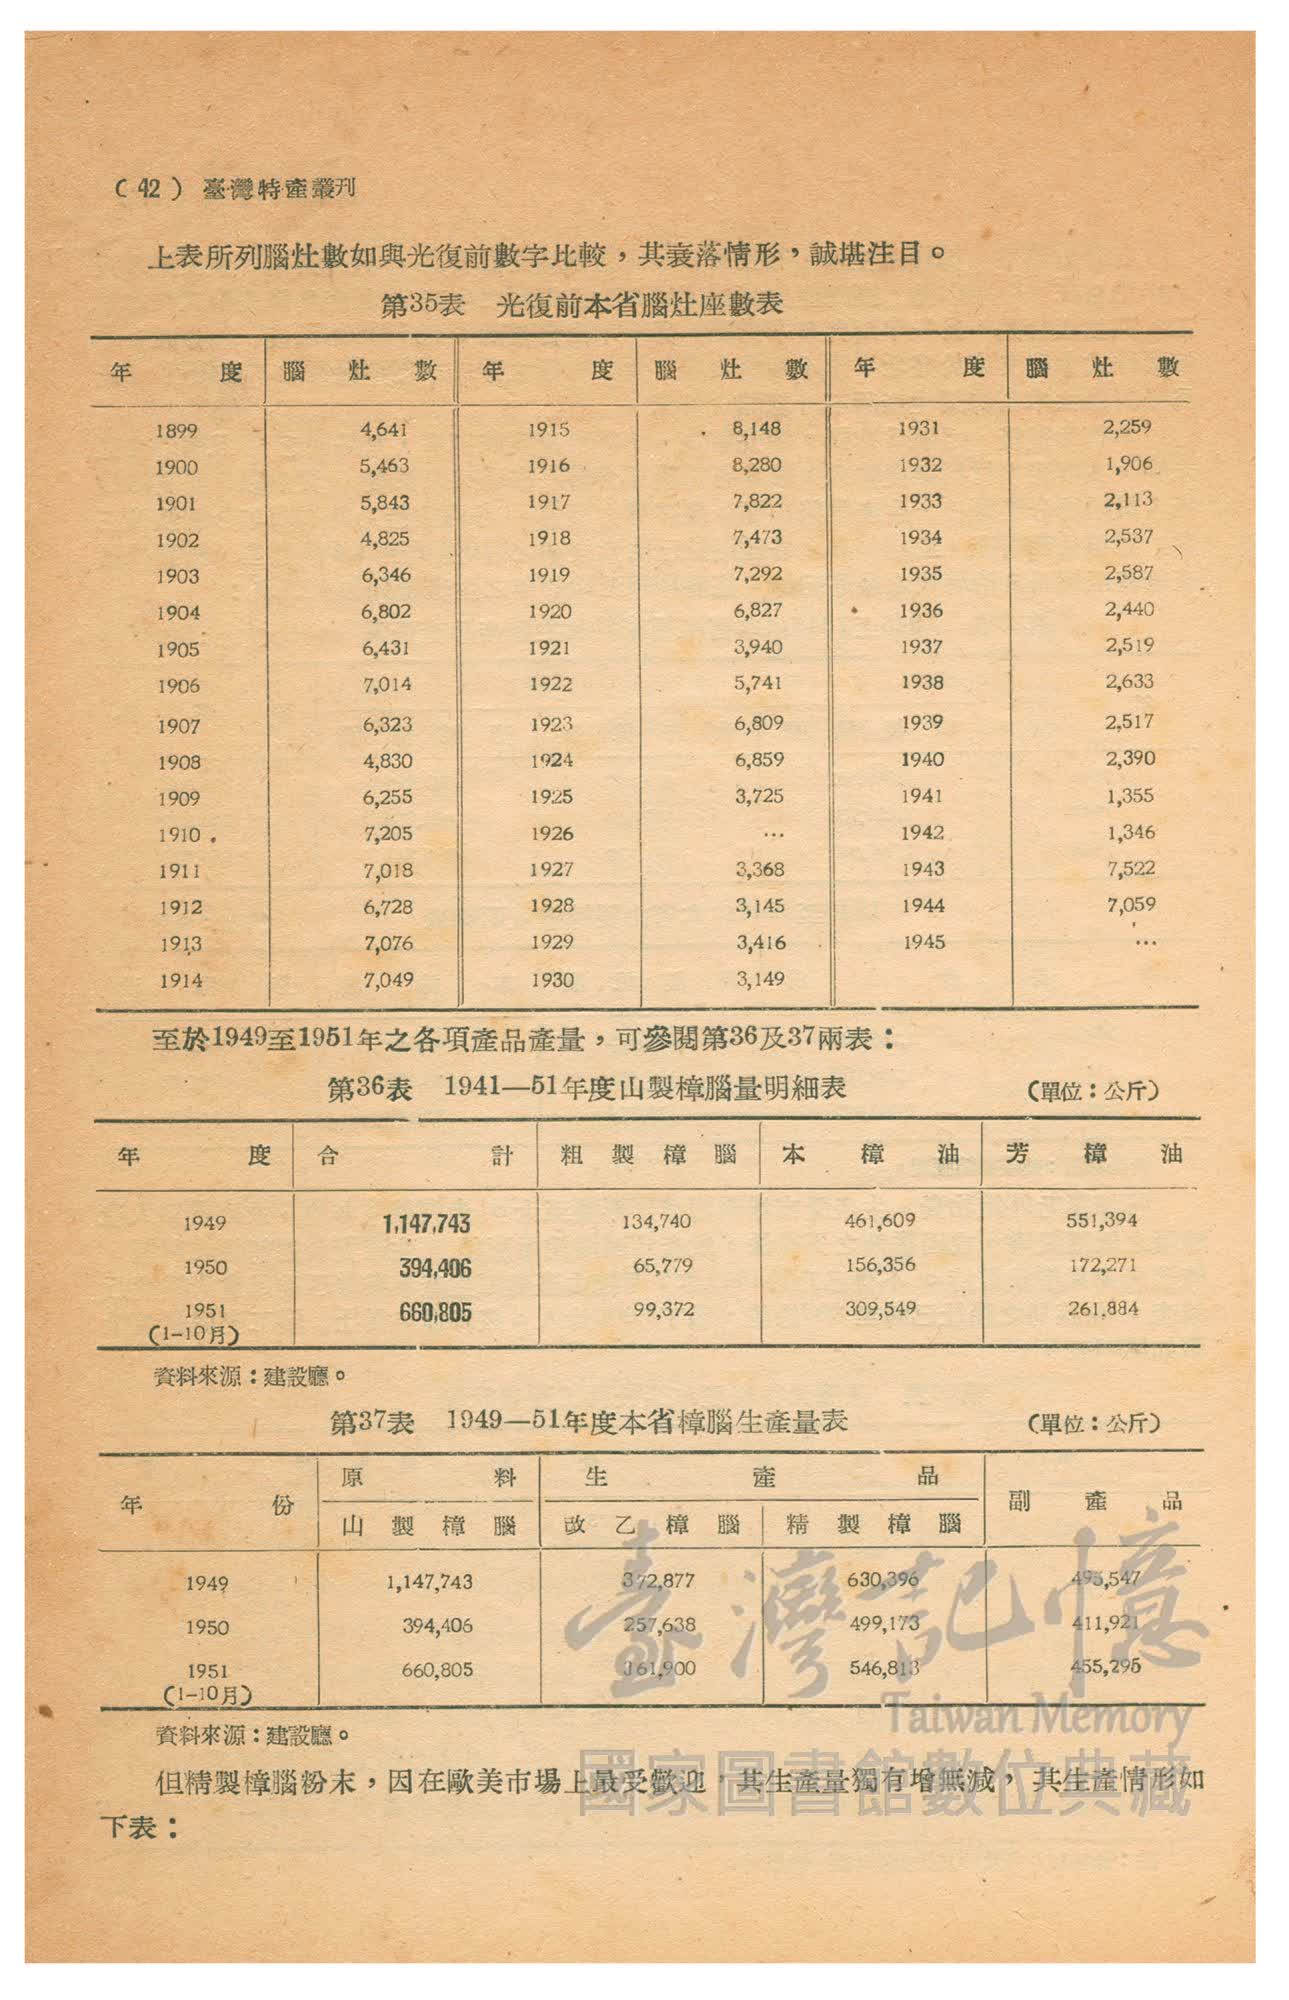 ( 42 ) 臺灣特產叢刋
上表所列腦灶數如與光復前數字比較，其衰落情形，誠堪注目。
第35表　光復前本省腦灶座數表
年　度　腦　灶　數　年　度　腦　灶　數　年　度　腦　灶　數
1899　4,641　1915　8,148　1931　2,259
1900　5,463　1916　8,280　1932　1,906
1901　5,843　1917　7,822　1933　2,113
1902　4,825　1918　7,473　1934　2,537
1903　6,346　1919　7,292　1935　2,587
1904　6,802　1920　6,827　1936　2,440
1905　6,431　1921　3,940　1937　2,519
1906　7,014　1922　5,741　1938　2,633
1907　6,323　1923　6,809　1939　2,517
1908　4,830　1924　6,859　1940　2,390
1909　6,255　1925　3,725　1941　1,355
1910　7,205　1926　…　1942　1,346
1911　7,018　1927　3,368　1943　7,522
1912　6,728　1928　3,145　1944　7,059
1913　7,076　1929　3,416　1945　…
1914　7,049　1930　3,149
至於1949至1951年之各項產品產量，可參閱第36及37兩表：
第36表　1941—51年度山製樟腦量明細表　（單位：公斤）
年　度　合　計　粗　製　樟　腦　本　樟　油　芳　樟　油
1949　1,147,743　134,740　461,609　551,394
1950　394,406　65,779　156,356　172,271
1951　660,805　99,372　309,549　261,884
(1-10月)
資料來源：建設廳。
第37表　1949—51年度本省樟腦生產量表　（單位：公斤）
年　份　原　料　生　產　品　副　產　品
山　製　樟　腦　改　乙　樟　腦　精　製　樟　腦
1949　1,147,743　372,877　630,396　495,547
1950　394,406　257,638　499,173　411,921
1951　660,805　361,900　546,813　455,295
(1-10月)
資料來源：建設廳。
但精製樟腦粉末，因在歐美市場上最受歡迎，其生產量獨有增無減，其生產情形如
下表：
臺灣記憶
Taiwan Memory
國家圖書館數位典藏